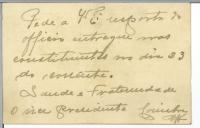 Pede a V. Ex. resposta do
officio entregue nas
constituintes no dia 23
do corrente.
Saude e Fraternidade
O vice presidente